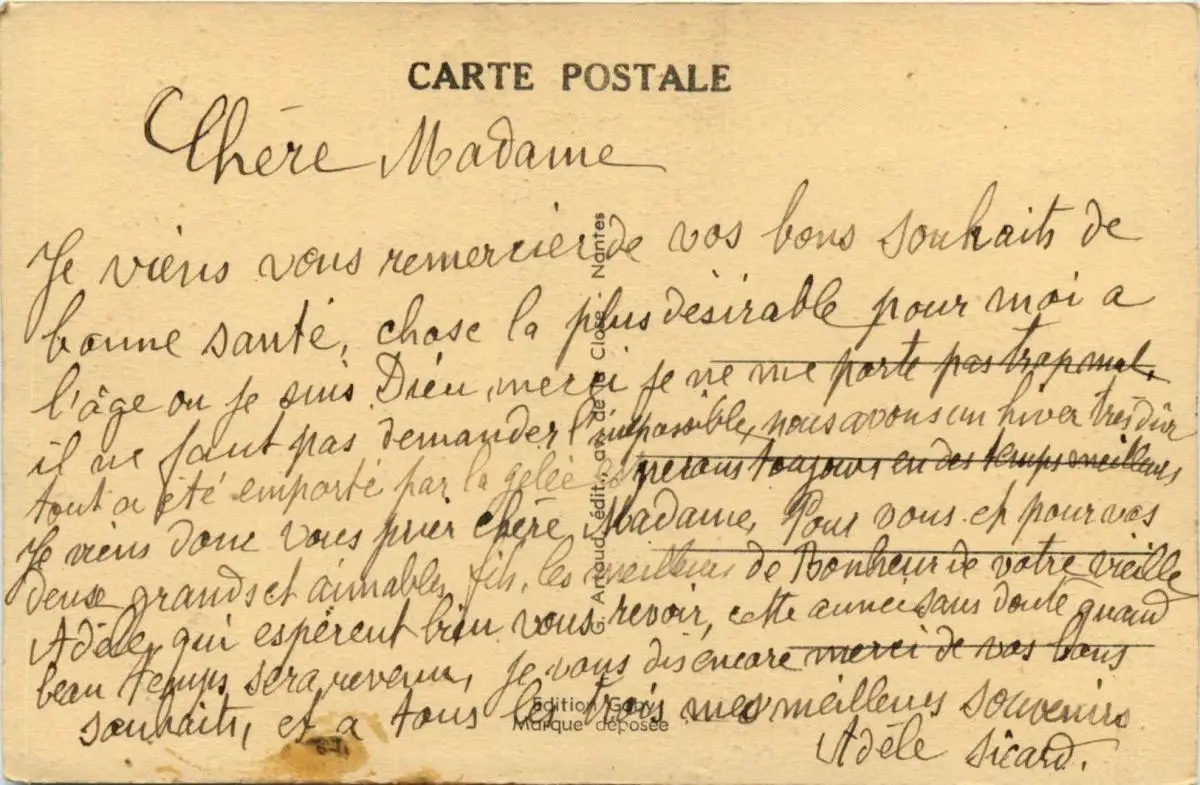 CARTE POSTALE
Chère Madame
Je viens vous remercier de vos bons souhaits de
bonne santé, chose la plus désirable pour moi a
l'âge ou je suis Dieu merci je ne me porte pas trop mal,
il ne faut pas demander l'impossible, nous avons un hiver très dur
tout a été emporté par la gelée toujours en des temps meilleurs
Je viens donc vous prier chère Madame, Pour vous et pour vos
deux grands et aimables fils, les meilleurs de Bonheur de votre vieille
Adèle, qui espèrent bien vous revoir, cette annee sans doute quand
beau temps sera revenu, je vous dis encore merci de vos bons
souhaits, et a tous les trois mes meilleurs souvenirs
Adèle Sicard.
G. Artaud, édit., av. de la Close - Nantes
Edition Gaby
Marque déposée